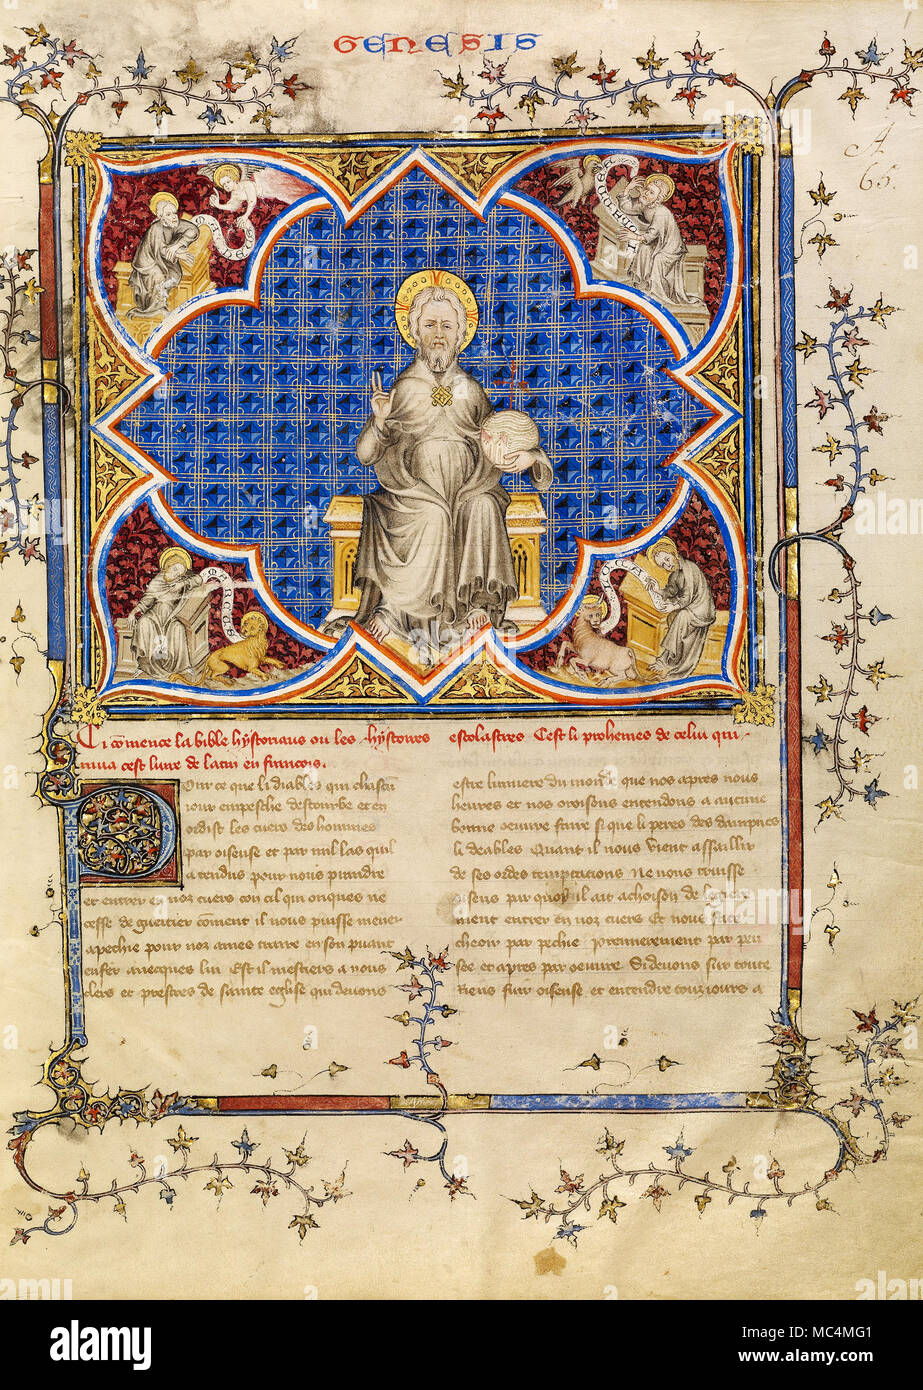 GENESIS
A
65.
Ci cõmence la bible hystoriaus ou les hystoires escolastres Cest li prohemes de celui qui
mist cest liure de latin en francois.
Pour ce que li diables qui chascũ
iour empesche destourbe et en
ordist les cuers des hommes
par oiseuse et par mil las quil
a tendus pour nous prendre
et entrer en noz cuers con cil qui onques ne
cesse de guetier cõment il nous puisse mener
a pechie pour noz ames traire en son puant
enfer auecques lui Est il mestiers a nous
clers et prestres de sainte eglise qui deuons
estre lumiere du monde que nos apres nous
heures et nos oroisons entendons a aucune
bonne oeuure faire si que li peres des
li deables Quant il nous vient assaillir
de ses ordes temptacions Ne nous truisse
oiseus par quoy il ait achoison de legiere
ment entrer en noz cuers Et nous face
cheoir par pechie premierement par pen
see et apres par oeuure. Si deuons sur toute
riens fuir oiseuse et entendre touz iours a
alamy
Image ID: MC4MG1
www.alamy.com